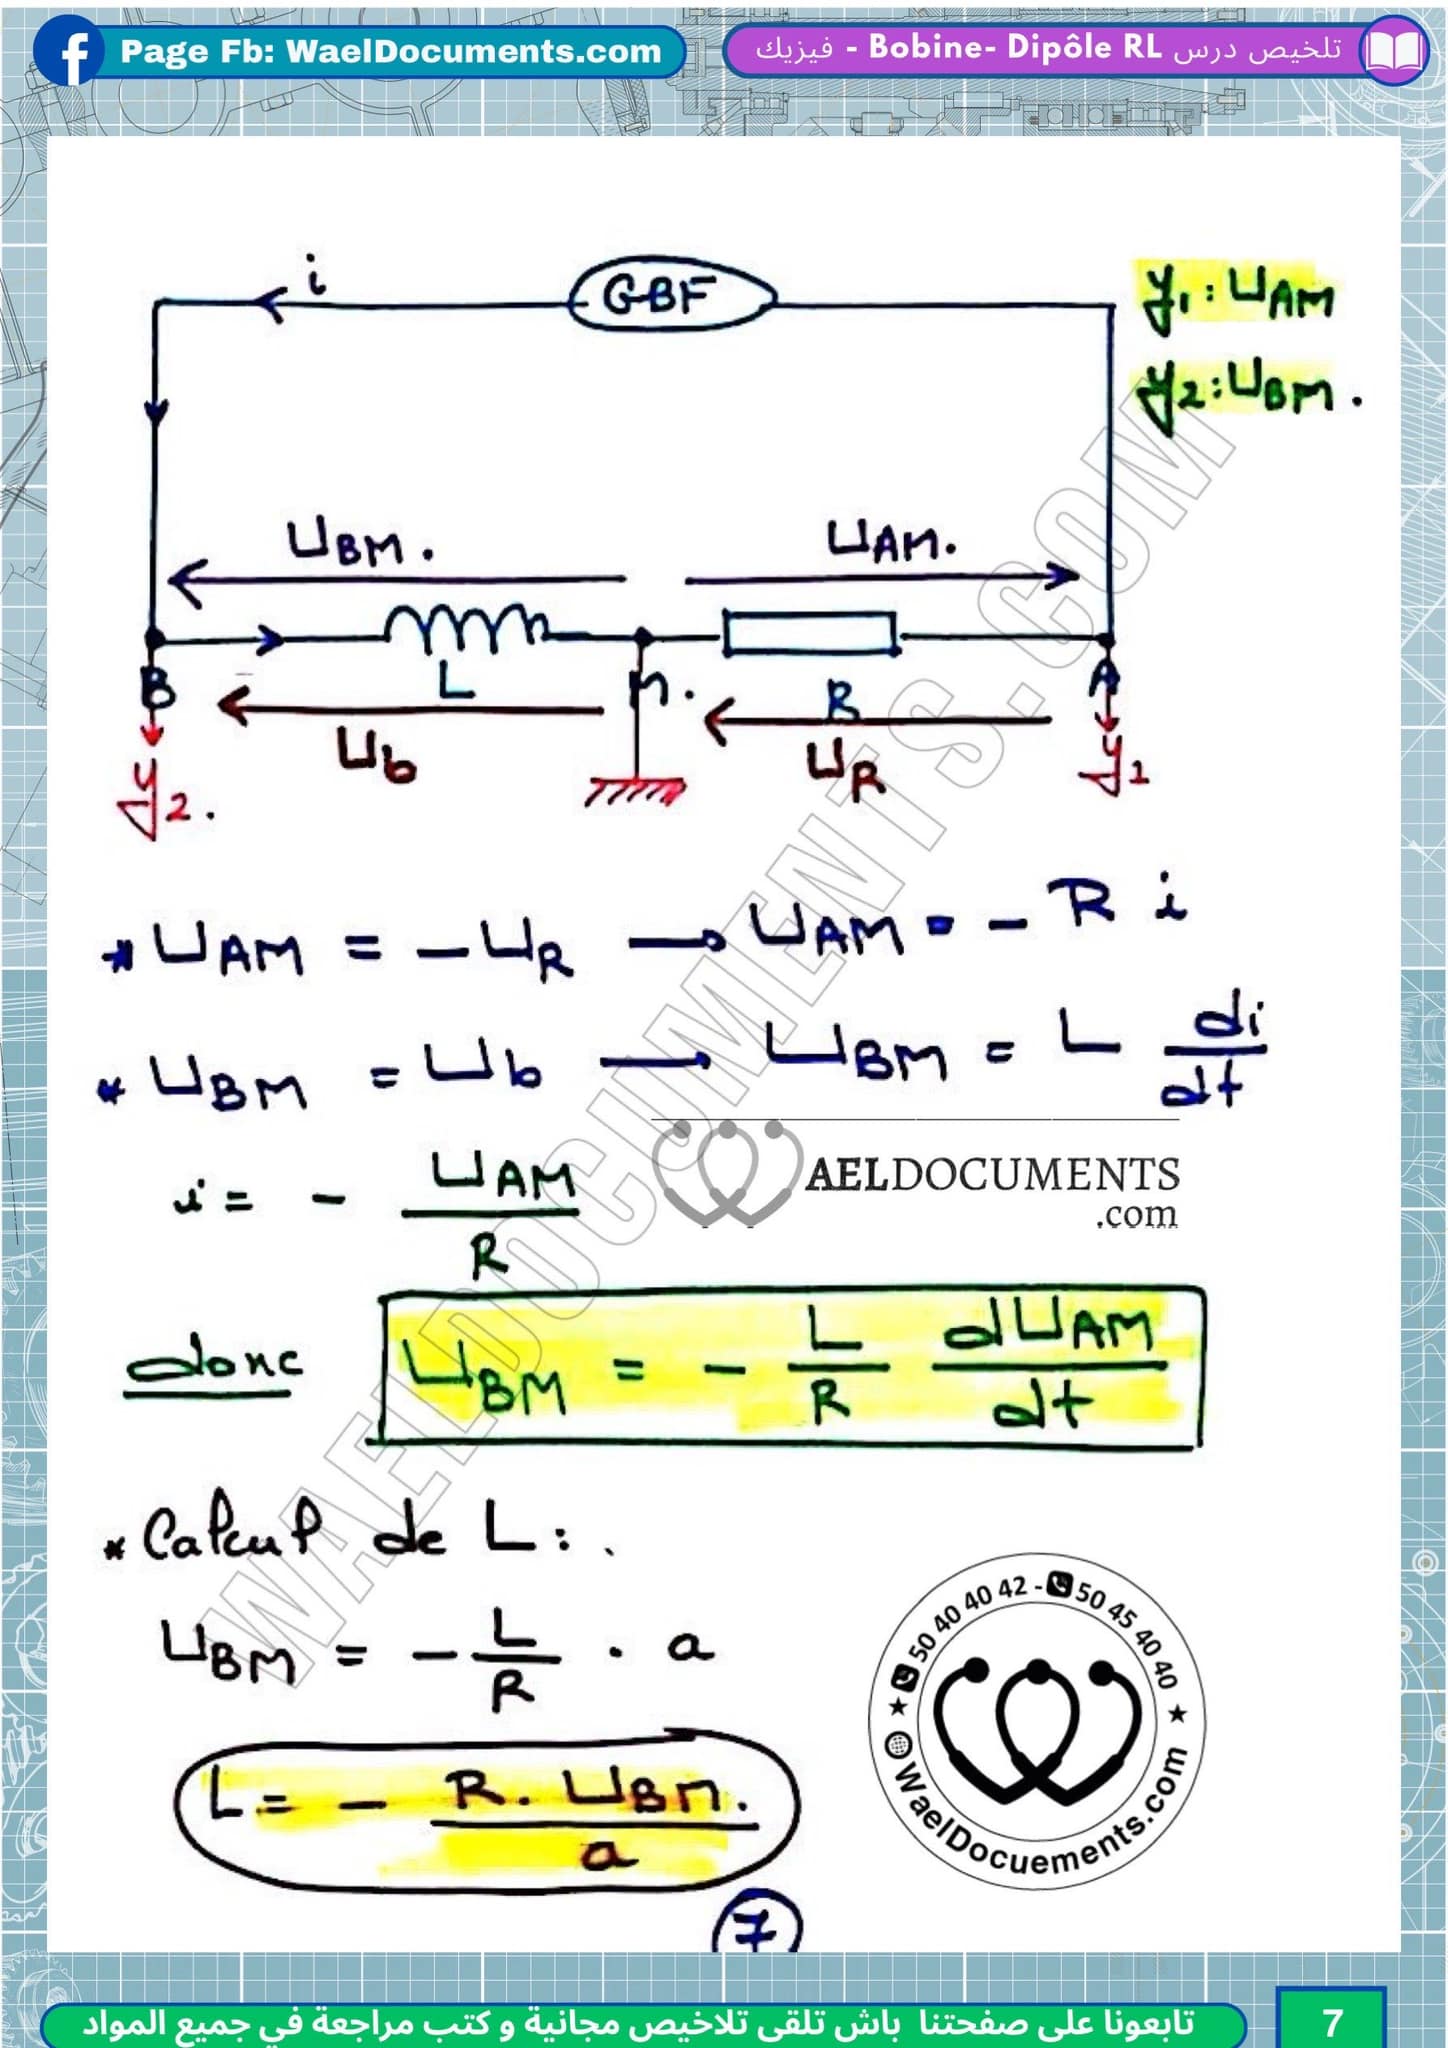 Page Fb: WaelDocuments.com
تلخيص درس Bobine- Dipôle RL - فيزيك
i
GBF
y1 : UAM
y2 : UBM .
UBM .
UAM .
B
L
M .
R
A
Ub
UR
y2 .
y1
* UAM = - UR → UAM = - R i
* UBM = Ub → UBM = L di/dt
i = - UAM/R
AELDOCUMENTS
.com
donc UBM = - L/R dUAM/dt
* Calcul de L : .
UBM = - L/R . a
L = - R . UBM . / a
50 40 40 42 - 50 45 40 40
WaelDocuements.com
WAELDOCUMENTS.COM
7
تابعونا على صفحتنا باش تلقى تلاخيص مجانية و كتب مراجعة في جميع المواد
7